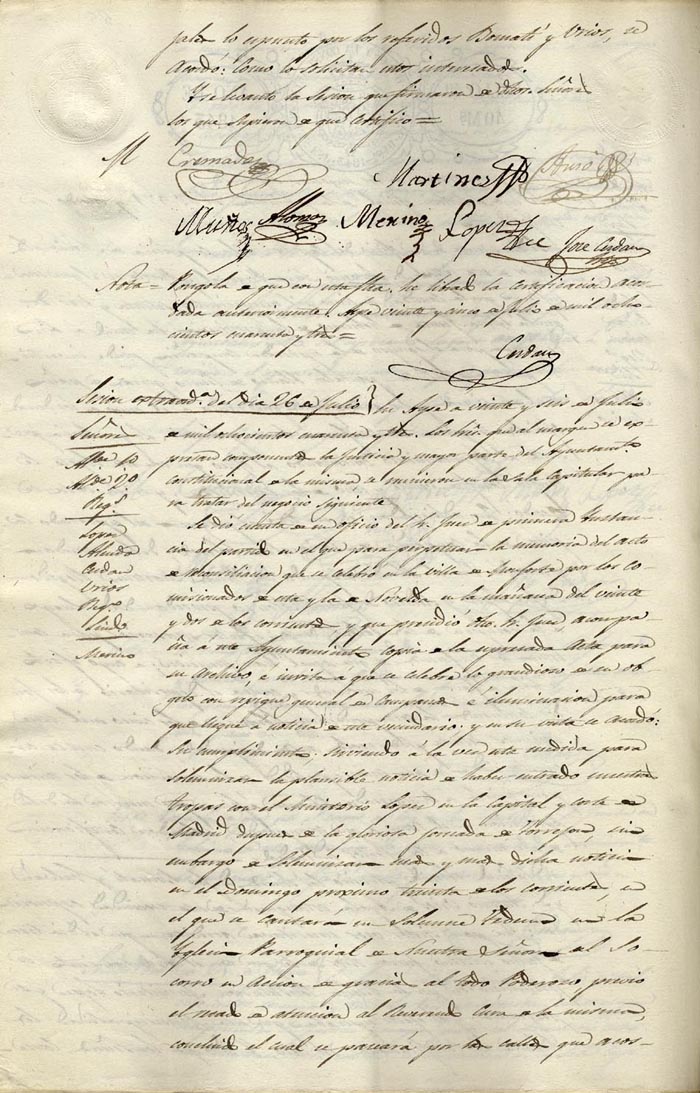 lo espuesto por los referidos Bonmatí y Urios, se
Acordó: Como lo solicitan estos interesados.
Y se levantó la Sesion que firmaron de dichos Señores
los que supieron de que certifico =
Cremades
Martinez
Muñoz Alemañ Merino Lopez José Cerdan
Nota = Pongola de que con esta fha. he librado la certificacion acor-
dada anteriormente. Aspe veinte y cinco de Julio de mil ocho-
cientos cuarenta y tres =
Cerdan
Sesion extraorda. del dia 26 de Julio } En Aspe a veinte y seis de Julio
Señores
de mil ochocientos cuarenta y tres. Los Sres. que al margen se es-
Alde. 1o
presan componentes la Justicia y mayor parte del Ayuntamto.
Alde. 2o
constitucional de la misma se reunieron en la Sala Capitular pa-
Regs.
ra tratar del negocio siguiente
Lopez
Se dió cuenta de un oficio del Sr. Juez de primera Instan-
Almodo
cia del partido en el que para perpetuar la memoria del acto
Cerdan
de reconciliacion que se celebró en la villa de Monforte por los Co-
Urios
misionados de esta y la de Novelda en la mañana del veinte
Regr
y dos de los corrientes, y que presidió dho. Sr. Juez, acompa-
Sindo
ña á este Ayuntamiento copia de la espresada Acta para
Merino
su Archivo, é invita a que se celebre lo grandioso de su ob-
geto con repique general de Campanas é iluminacion para
que llegue a noticia de este vecindario. y en su vista se Acordó:
Su cumplimiento. Sirviendo á la vez esta medida para
solemnizar la plausible noticia de haber entrado nuestras
tropas con el Ministerio Lopez en la Capital y corte de
Madrid despues de la gloriosa jornada de Torrejon, sin
embargo de solemnizar mas y mas dicha noticia
en el Domingo proximo treinta de los corrientes, en
el que se cantará un Solemne Tedeum en la
Yglecia Parroquial de Nuestra Señora del So-
corro en Accion de gracias al todo Poderoso previo
el recado de atencion al Reverendo Cura de la misma,
concluido el cual se paseará por las calles que acos-